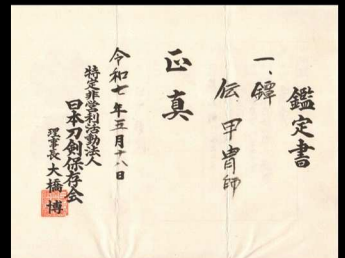 鑑定書
一、鐔
伝 甲冑師
正真
令和七年五月十八日
特定非営利活動法人
日本刀剣保存会
理事長 大橋 博